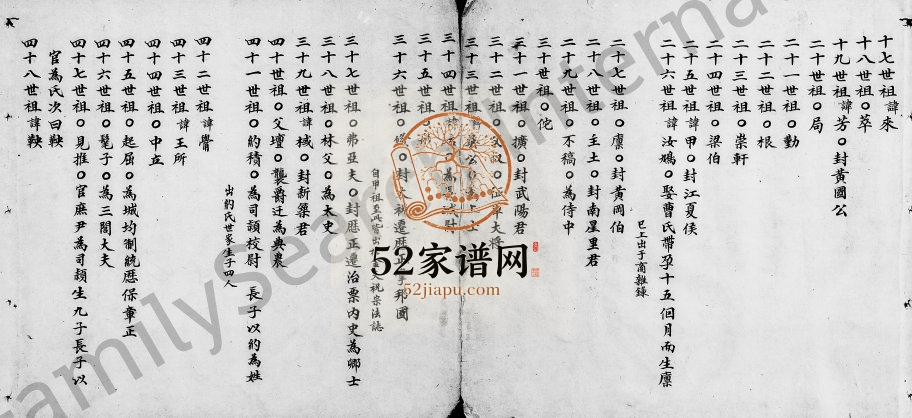 十七世祖諱來
十八世祖○萃
十九世祖諱芳○封黃國公
二十世祖○局
二十一世祖○勤
二十二世祖○根
二十三世祖○崇軒
二十四世祖○梁伯
二十五世祖諱甲○封江夏侯
二十六世祖諱汝鳩○娶曹氏帶孕十五個月而生廪
已上出于商雜錄
二十七世祖○廪○封黃岡伯
二十八世祖○主土○封南星里君
二十九世祖○不稿○為侍中
三十世祖○佗
三十一世祖○擴○封武陽君
三十二世祖○父叔○征軍大將
三十三世祖
三十四世祖
三十五世祖
三十六世祖
自甲祖至此皆出
祝宗法誌
三十七世祖○弗亞夫○封歷正遷治票内史為卿士
三十八世祖○林父○為太史
三十九世祖諱棫○封新築君
四十世祖○父壇○襲爵迁為典農
四十一世祖○的積○為司頴校尉 長子以的為姓
出的氏世家生子四人
四十二世祖諱
四十三世祖諱王所
四十四世祖○中立
四十五世祖○起屈○為城均制統歷保章正
四十六世祖○髡子○為三閭大夫
四十七世祖○見推○官庶尹為司頴生九子長子以
官為氏次曰鞅
四十八世祖諱鞅
52家谱网
52jiapu.com
FamilySearch International